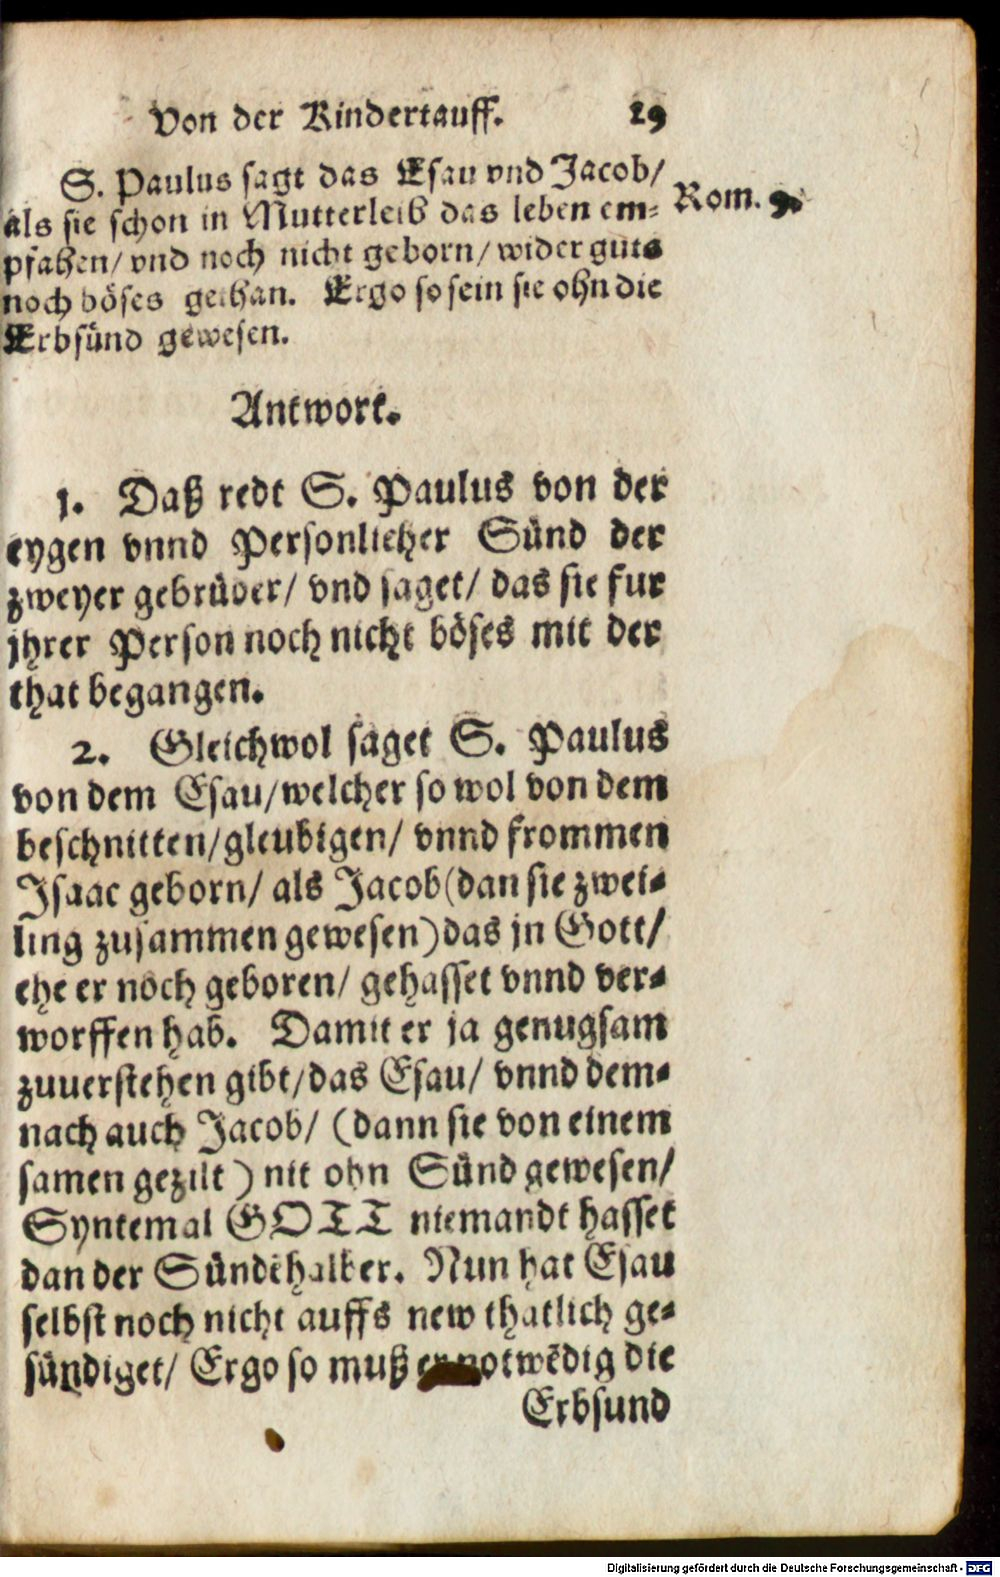 Von der Kindertauff. 29
S. Paulus sagt das Esau vnd Jacob/
als sie schon in Mutterleib das leben em⸗ Rom. 9.
pfahen/ vnd noch nicht geborn/ wider guts
noch böses gethan. Ergo so sein sie ohn die
Erbsünd gewesen.
Antwort.
1. Daß redt S. Paulus von der
eygen vnnd Personlicher Sünd der
zweyer gebrüder/ vnd saget/ das sie fur
jhrer Person noch nicht böses mit der
that begangen.
2. Gleichwol saget S. Paulus
von dem Esau/ welcher so wol von dem
beschnitten/ gleubigen/ vnnd frommen
Isaac geborn/ als Jacob (dan sie zwei⸗
ling zusammen gewesen) das jn Gott/
ehe er noch geboren/ gehasset vnnd ver⸗
worffen hab. Damit er ja genugsam
zuuerstehen gibt/ das Esau/ vnnd dem⸗
nach auch Jacob/ (dann sie von einem
samen gezilt) nit ohn Sünd gewesen/
Syntemal GOTT niemandt hasset
dan der Sündẽ halber. Nun hat Esau
selbst noch nicht auffs new thatlich ge⸗
sündiget/ Ergo so muß er notwẽdig die
Erbsund
Digitalisierung gefördert durch die Deutsche Forschungsgemeinschaft - DFG